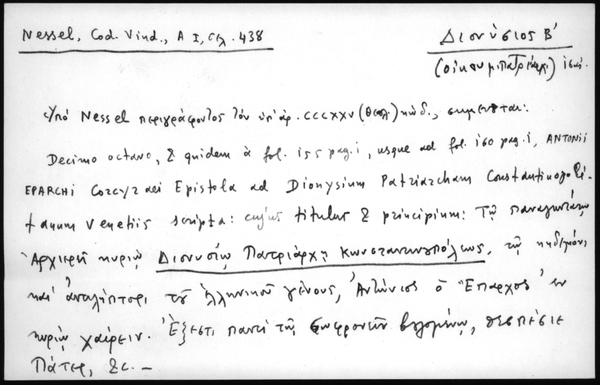 Nessel, Cod. Vind., A I, σελ. 438
Διονύσιος Β'
(οἰκουμ. Πατριάρχ.)
Ὑπὸ Nessel περιγράφοντος τὸν ὑπ' ἀρ. CCCXXV (θεολ.) κώδ., σημειοῦται:
Decimo octavo, & quidem à fol. 155 pag. 1, usque ad fol. 160 pag. 1, ANTONII
EPARCHI Corcyraei Epistola ad Dionysium Patriarcham Constantinopoli-
tanum Venetiis scripta: cujus titulus & principium: Τῷ παναγιωτάτῳ
Ἀρχιερεῖ κυρίῳ Διονυσίῳ Πατριάρχῃ Κωνσταντινουπόλεως, τῷ κηδεμόνι
καὶ ἀντιλήπτορι τοῦ ἑλληνικοῦ γένους, Ἀντώνιος ὁ Ἔπαρχος ἐν
κυρίῳ χαίρειν. Ἔξεστι παντὶ τῷ σωφρονεῖν βουλομένῳ, θεσπέσιε
Πάτερ, &c. –